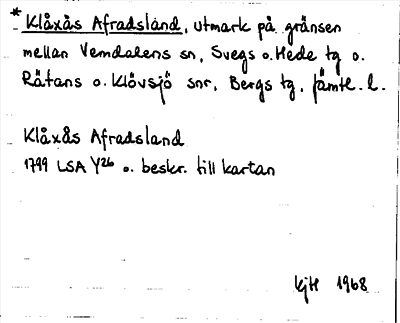 * Klåxås Afradsland, utmark på gränsen
mellan Vemdalens sn, Svegs o. Hede tg o.
Rätans o. Klövsjö snr, Bergs tg, Jämtl. l.
Klåxås Afradsland
1799 LSA Y26 o. beskr. till kartan
KjH 1968